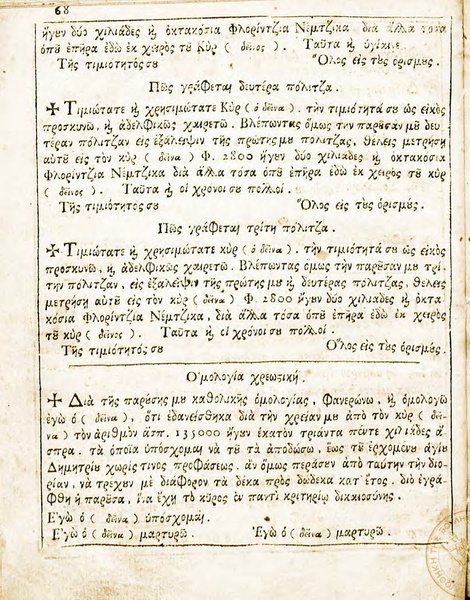 68
ἤγουν δύο χιλιάδες ϗ ὀκτακόσια Φλορίντζια Νέμτζικα διὰ ἄλλα τόσα
ὁποῦ ἐπῆρα ἐδῶ ἐκ χειρὸς τοῦ Κὺρ ( δεῖνος ). Ταῦτα ϗ ὑγίαινε.
Τῆς τιμιότητός σου Ὅλος εἰς τοὺς ὁρισμούς.
Πῶς γράφεται δευτέρα πόλιτζα.
✠ Τιμιώτατε ϗ χρησιμώτατε Κὺρ ( ὁ δεῖνα ). τὴν τιμιότητά σου ὡς εἰκὸς
προσκυνῶ, ϗ ἀδελφικῶς χαιρετῶ. Βλέπωντας ὅμως τὴν παροῦσάν μου δευ-
τέραν πόλιτζαν εἰς ἐξάλειψιν τῆς πρώτης μου πόλιτζας, θέλεις μετρήσῃ
αὐτοῦ εἰς τὸν κὺρ ( δεῖνα ) Φ. 2800 ἤγουν δύο χιλιάδες ϗ ὀκτακόσια
Φλορίντζια Νέμτζικα διὰ ἄλλα τόσα ὁποῦ ἐπῆρα ἐδῶ ἐκ χειρὸς τοῦ κὺρ
( δεῖνος ). Ταῦτα ϗ οἱ χρόνοι σου πολλοί.
Τῆς τιμιότητός σου Ὅλος εἰς τοὺς ὁρισμούς.
Πῶς γράφεται τρίτη πόλιτζα.
✠ Τιμιώτατε ϗ χρησιμώτατε κὺρ ( ὁ δεῖνα ). τὴν τιμιότητά σου ὡς εἰκὸς
προσκυνῶ, ϗ ἀδελφικῶς χαιρετῶ. Βλέπωντας ὅμως τὴν παροῦσάν μου τρί-
την πόλιτζαν, εἰς ἐξάλειψιν τῆς πρώτης μου ϗ δευτέρας πόλιτζας, θέλεις
μετρήσῃ αὐτοῦ εἰς τὸν κὺρ ( δεῖνα ) Φ. 2800 ἤγουν δύο χιλιάδες ϗ ὀκτα-
κόσια Φλορίντζια Νέμτζικα, διὰ ἄλλα τόσα ὁποῦ ἐπῆρα ἐδῶ ἐκ χειρὸς
τοῦ κὺρ ( δεῖνος ). Ταῦτα ϗ οἱ χρόνοι σου πολλοί.
Τῆς τιμιότητός σου Ὅλος εἰς τοὺς ὁρισμούς.
Ὁμολογία χρεωστική.
✠ Διὰ τῆς παρούσης μου καθολικῆς ὁμολογίας, Φανερώνω, ϗ ὁμολογῶ
ἐγὼ ὁ ( δεῖνα ), ὅτι ἐδανείσθηκα διὰ τὴν χρείαν μου ἀπὸ τὸν κὺρ ( δεῖ-
να ) τὸν ἀριθμὸν ἄσπ. 135000 ἤγουν ἑκατὸν τριάντα πέντε χιλιάδες ἄ-
σπρα. τὰ ὁποῖα ὑπόσχομαι νὰ τοῦ τὰ ἀποδώσω, ἕως τοῦ ἐρχομένου ἁγίου
Δημητρίου χωρίς τινος προφάσεως. ἂν ὅμως περάσουν ἀπὸ ταύτην τὴν διο-
ρίαν, νὰ τρέχουν μὲ διάφορον τὰ δέκα πρὸς δώδεκα κατ᾽ ἔτος. διὸ ἐγρά-
φθη ἡ παροῦσα, ἵνα ἔχῃ τὸ κῦρος ἐν παντὶ κριτηρίῳ δικαιοσύνης.
Ἐγὼ ὁ ( δεῖνα ) ὑπόσχομαι.
Ἐγὼ ὁ ( δεῖνα ) μαρτυρῶ. Ἐγὼ ὁ ( δεῖνα ) μαρτυρῶ.